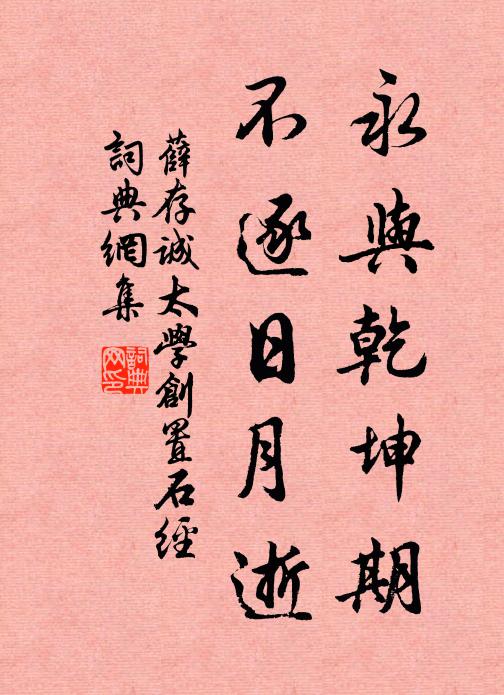 永與乾坤期
不逐日月逝
薛存誠太學創置石經
詞典網集
詞典
网印